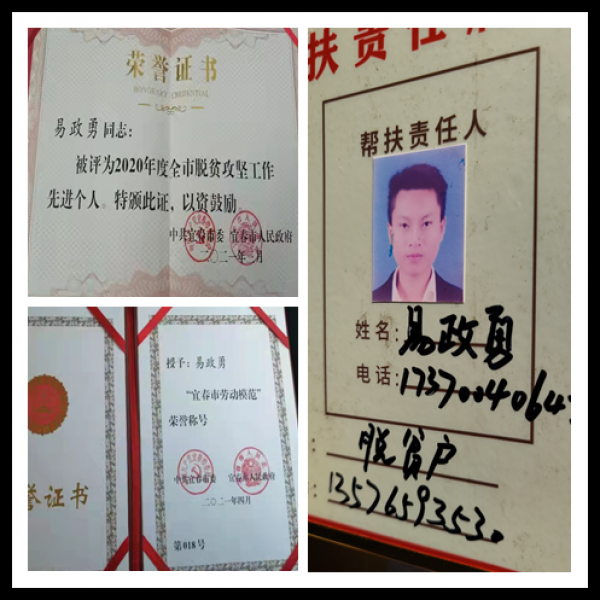 荣誉证书
HONORARY CREDENTIAL
易政勇同志：
被评为2020年度全市脱贫攻坚工作
先进个人。特颁此证，以资鼓励。
中共宜春市委 宜春市人民政府
二〇二一年二月
誉证书
授予：易政勇
“宜春市劳动模范”
荣誉称号
中共宜春市委 宜春市人民政府
二〇二一年四月
第018号
扶责任
帮扶责任人
姓名：易政勇
电话：1737004064
脱贫户
13576593530